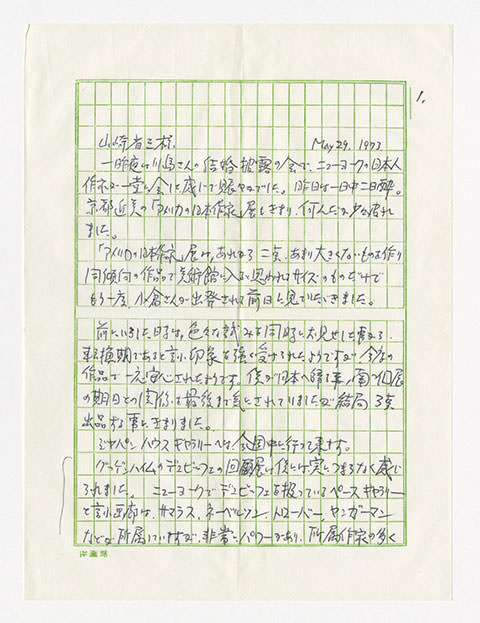 1.
山崎省三様 May 29. 1973
一昨夜は川島さんの結婚披露の会で、ニューヨークの日本人
作家が一堂に会した感じで賑やかでした。昨日は一日中二日酔。
京都近美の「アメリカの日本作家」展もきまり、何んだか少々疲れ
ました。
「アメリカの日本作家」展は、あれから二点、あまり大きくないものを作り
同傾向の作品で美術館に入ると思われるサイズのものだけで
もう一度、小倉さんが出発される前日に見ていただきました。
前にいらした時は、色々な試みを同時にお見せした為か、
転換期であると言う印象を強く受けられたようですが今度の
作品で一応安心されたようです。僕が日本へ帰る事、南の個展
の期日との関係を最後まで気にされていましたが結局 3点
出品する事にきまりました。
ジャパン ハウス ギャラリーへは今週中に行って来ます。
グーゲンハイムのデュビュフェの回顧展は僕には実につまらなく感じ
られました。 ニューヨークでデュビュフェを扱っているペース ギャラリー
と言う画廊は、サマラス、ネーベルソン、トローバー、ヤンガーマン
などが所属していますが、非常にパワーがあり、所属作家の多く